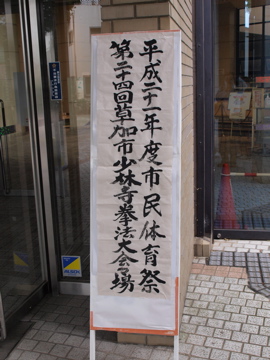 平成二十一年度市民体育祭
第二十四回草加市少林寺拳法大会々場